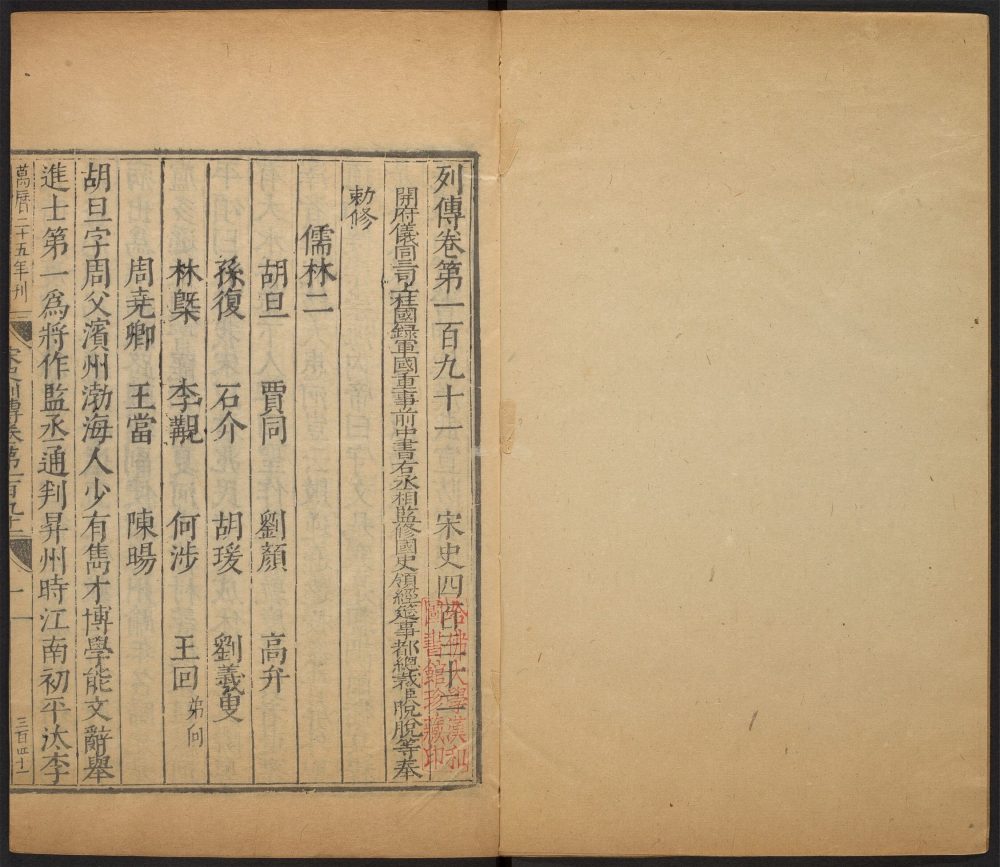 列傳卷第一百九十一　宋史四百三十二
開府儀同三司上柱國録軍國重事前中書右丞相監修國史領經筵事都總裁脫脫等奉
勅修
儒林二
胡旦　賈同　劉顏　高弁
孫復　石介　胡瑗　劉羲叟
林槩　李覯　何涉　王回弟向
周堯卿　王當　陳暘
胡旦字周父濱州渤海人少有雋才博學能文辭舉
進士第一爲將作監丞通判昇州時江南初平汰李
萬曆二十五年刊
宋史列傳卷第一百九十一
一
三百四十一
哈佛大學漢和
圖書館珍藏印